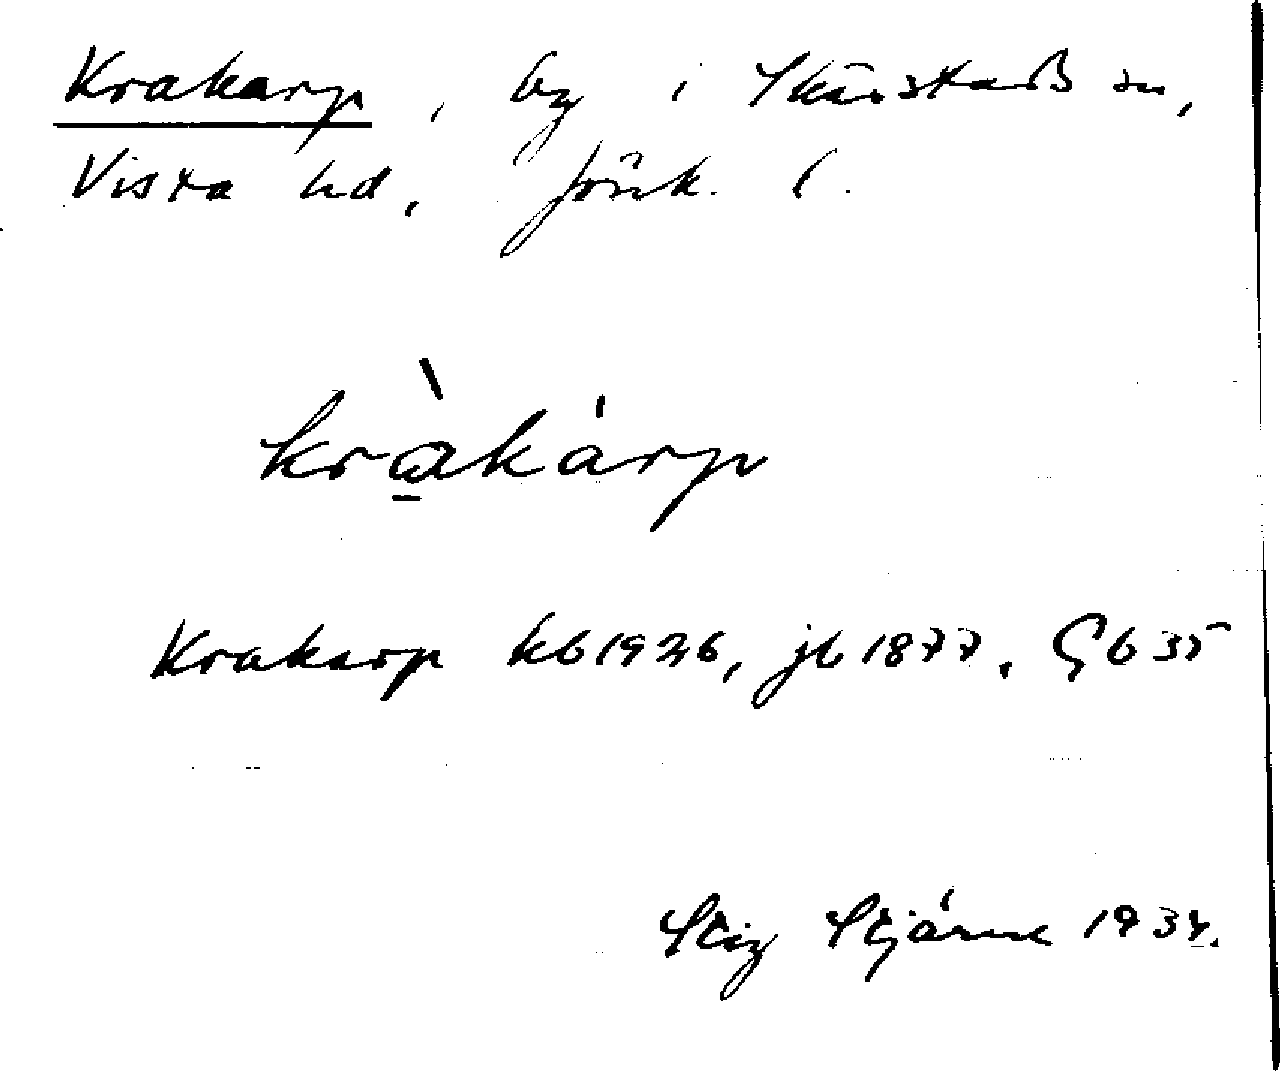 Krakarp, by i Skärstads sn,
Vista hd, Jönk. l.
kràkárp
Krakarp kb 1926, jb 1877. Gb 35
Stig Stjärne 1934.